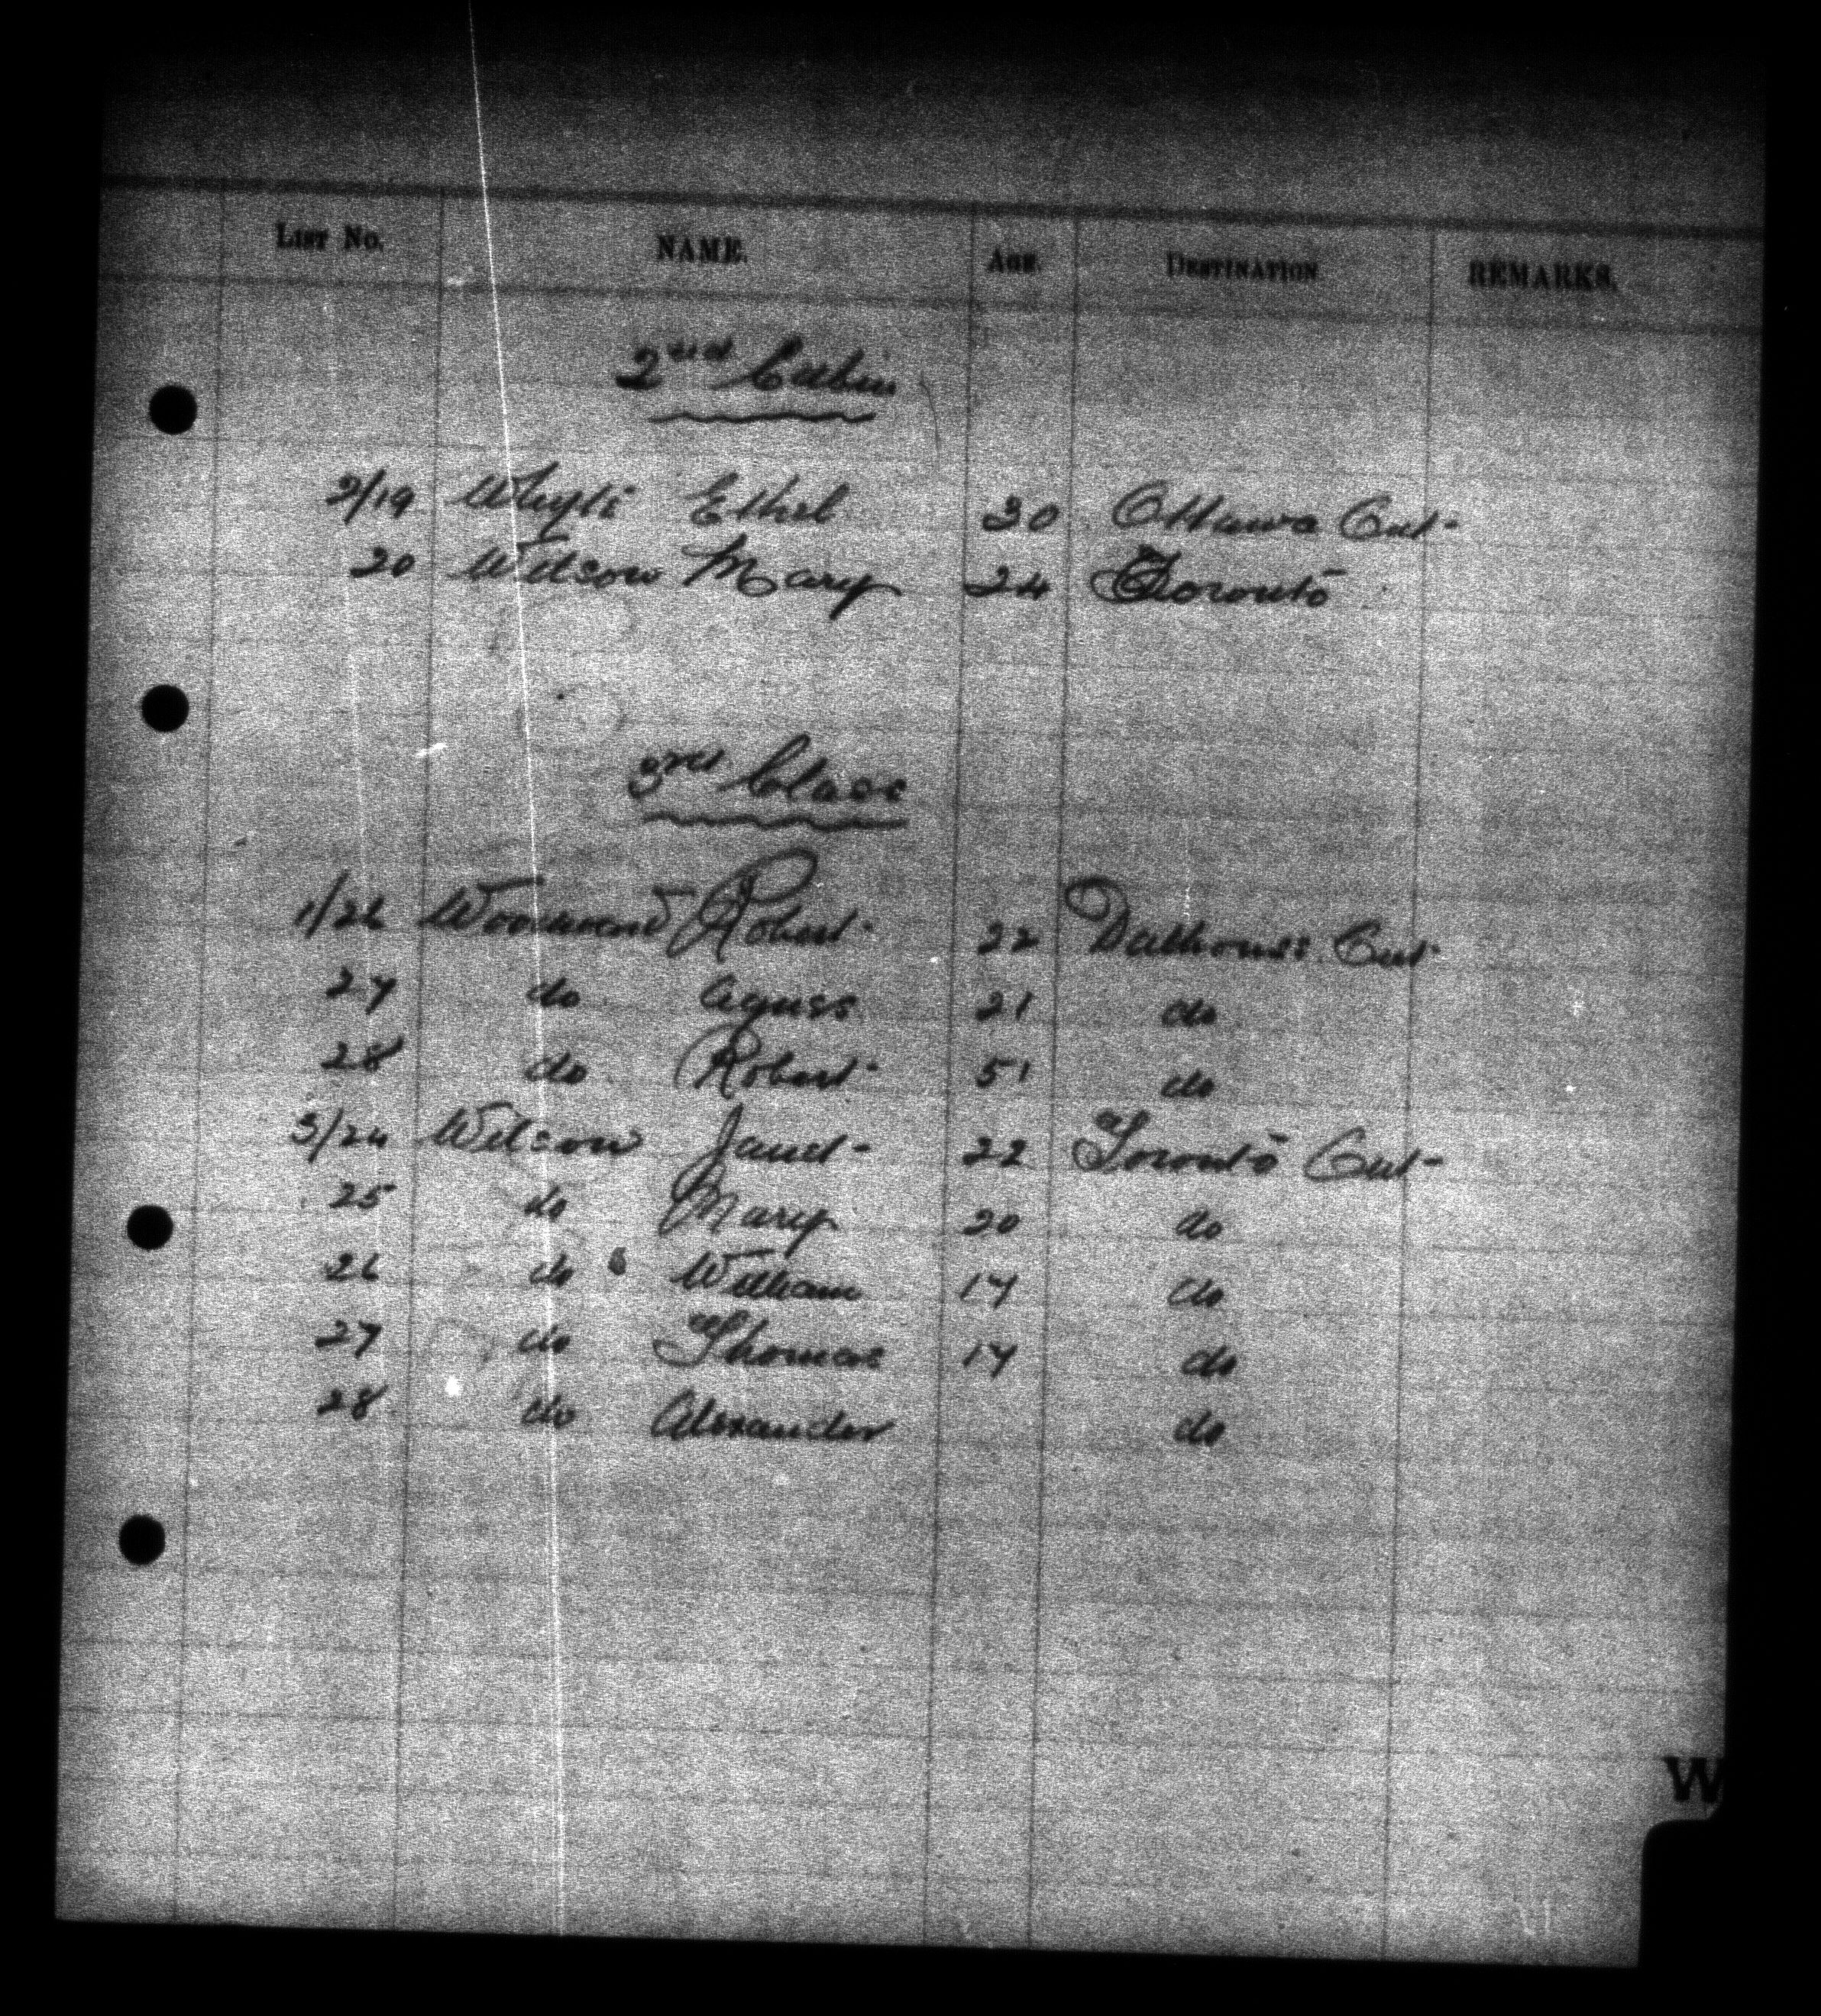 LIST No. NAME. AGE. DESTINATION REMARKS.
2nd Cabin
2/19 Whyte Ethel 30 Ottawa Ont-
20 Wilson Mary 24 Toronto
3rd Class
1/26 Robert 22 Dalhousie Ont
27 do Agness 21 do
28 do Robert 51 do
3/24 Wilson Janet 22 Toronto Ont-
25 do Mary 20 do
26 do William 17 do
27 do Thomas 17 do
28 do Alexander do
W